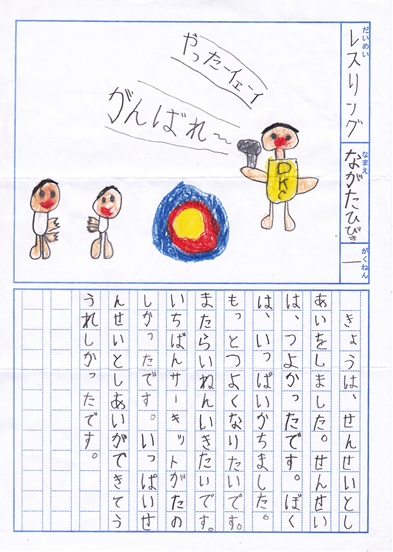 だいめい
レスリング
なまえ
ながたひびき
がくねん
一
やったーイェーイ
がんばれ〜
DK
きょうは、せんせいとし
あいをしました。せんせい
は、つよかったです。ぼく
は、いっぱいかちました。
もっとつよくなりたいです。
またらいねんいきたいです。
いちばんサーキットがたの
しかったです。いっぱいせ
んせいとしあいができてう
うれしかったです。